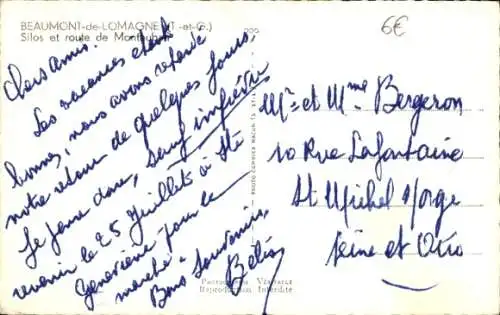 BEAUMONT-de-LOMAGNE (T.-et-G.)
Silos et route de Montauban
6€
Chers amis.
Les vacances étant
bonnes, nous avons retardé
notre retour de quelques jours.
Je pense donc, sauf imprévu
revenir le 25 Juillet à Ste
Geneviève pour le
marché.
Bons Souvenirs
Mr et Mme Bergeron
10 Rue Lafontaine
St Michel s/orge
Seine et Oise
Reproduction Interdite